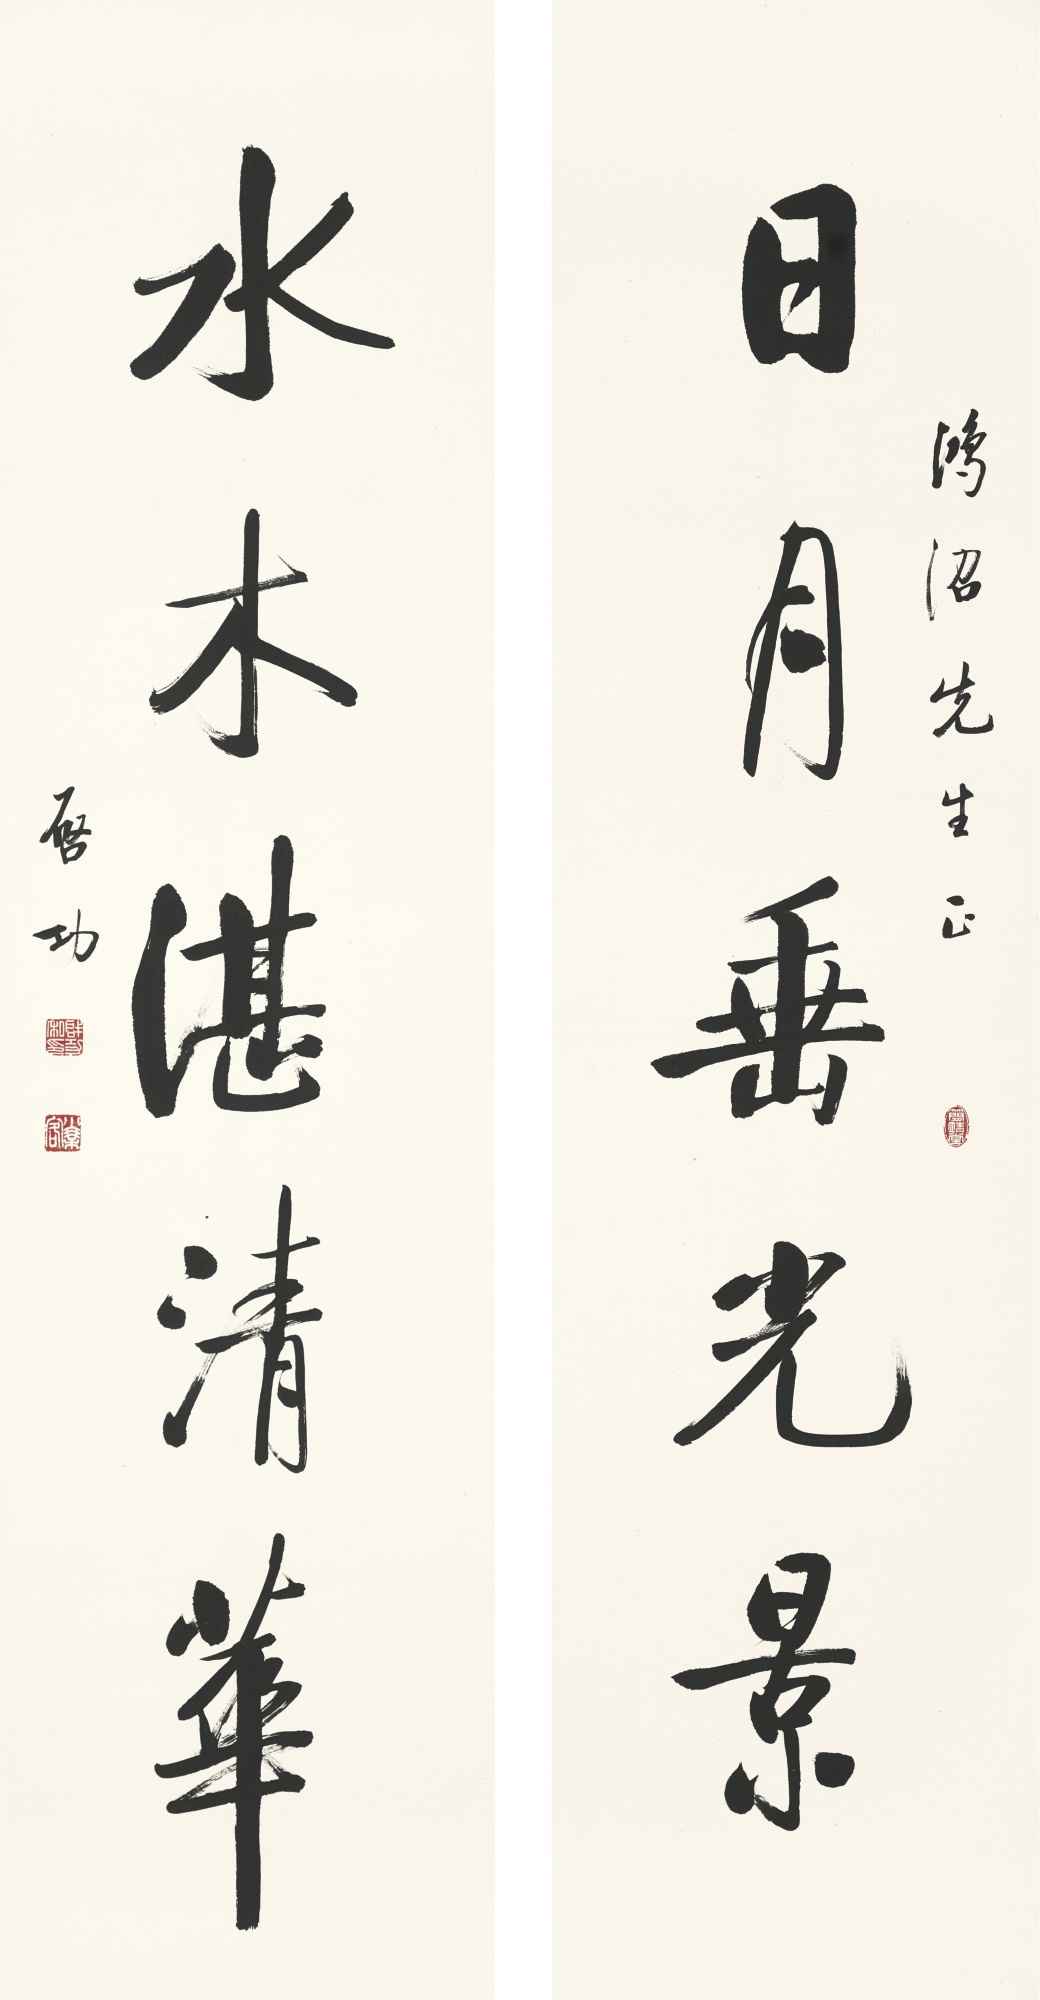 日月垂光景
鴻沼先生正
水木湛清華
啓功